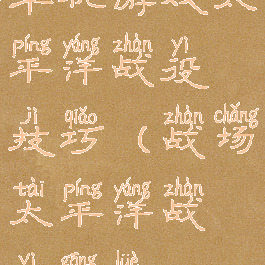 píng yáng zhàn yì
平洋战役
jì qiǎo zhàn chǎng
技巧（战场
tài píng yáng zhàn
太平洋战
yì gōng lüè